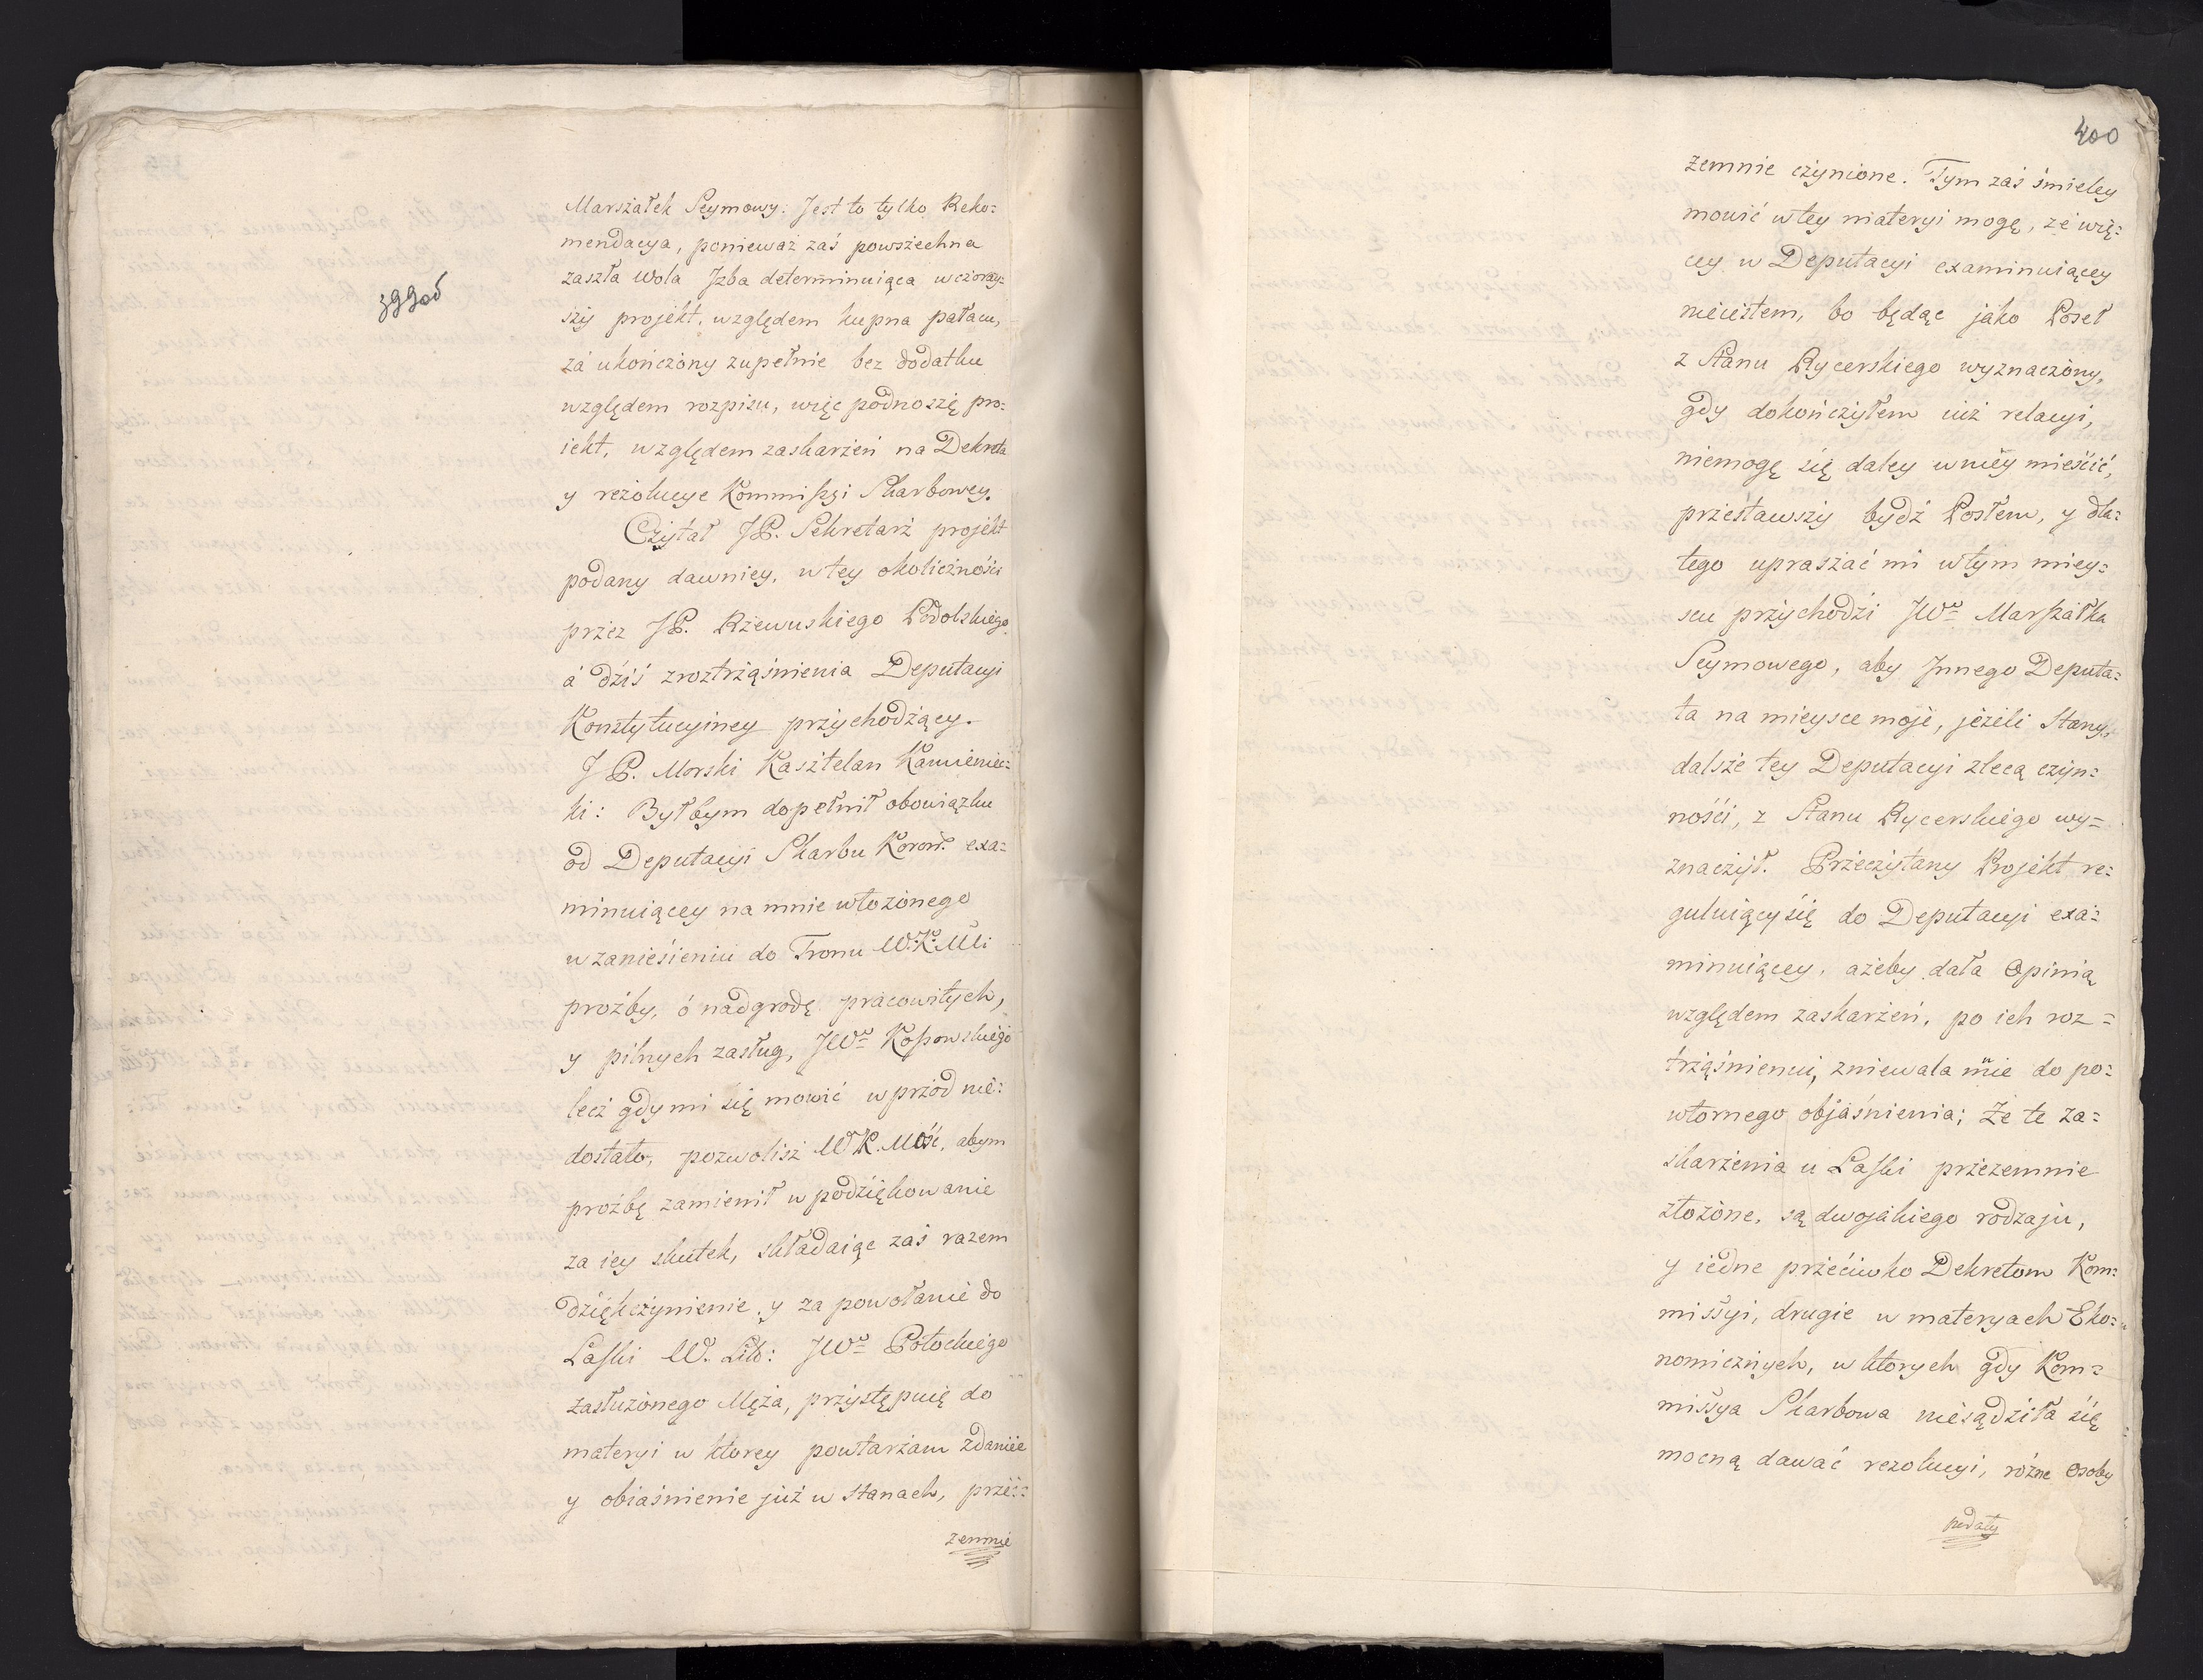 399od
Marszałek Seymowy: Jest to tylko Reko=
mendacya, ponieważ zaś powszechna
zaszła wola Jzba determinuiąca wczoray=
szy projekt, względem kupna pałacu,
zá ukończony zupełnie bez dodatku
względem rozpisu, więc podnoszę pro=
iekt, względem zaskarżeń na Dekreta
y rezolucye Kommissyi Skarbowey.
Czytał JP. Sekretarz projekt
podany dawniey, w tey okoliczności
przez JP. Rzewuskiego Podolskiego,
á dziś z roztrząśnienia Deputacyi
Konstytucyiney przychodzący.
JP. Morski Kasztelan Kamieniec=
ki: Byłbym dopełnił obowiązku
od Deputacyi Skarbu Koron. exa=
minuiącey na mnie włożonego
w zaniesieniu do Tronu W.K.Mći
proźby, ó nadgrodę pracowitych,
y pilnych zasług, JWo Kossowskiego
lecz gdy mi się mowić wprzod nie=
dostało, pozwolisz W K. Mość, abym
proźbę zamienił w podziękowanie
za iey skutek, składaiąc zaś razem
dziękczynienie, y za powołanie do
Laski W. Litt: JWo Potockiego
zasłużonego Męża, przystępuię do
materyi w ktorey powtarzam zdanie
y obiaśnienie już w Stanach, prze=
zemnie
400
zemnie czynione. Tym zaś śmieley
mowić w tey materyi mogę, że wię=
cey w Deputacyi examinuiącey
nieiestem, bo będąc jako Poseł
z Stanu Rycerskiego wyznaczony,
gdy dokończyłem iuż relacyi,
niemogę się daley w niey mieścić,
przestawszy bydź Posłem, y dla=
tego upraszać mi w tym miey=
scu przychodzi JWo Marszałka
Seymowego, aby Jnnego Deputa=
ta na mieysce moje, jeżeli Stany,
dalsze tey Deputacyi zlecą czyn=
ności, z Stanu Rycerskiego wy=
znaczył. Przeczytany Projekt re=
guluiący się do Deputacyi exa=
minuiącey, ażeby dała Opinią
względem zaskarżeń, po ich roz=
trząśnieniu, zniewala mnie do po=
wtornego objaśnienia; Że te za=
skarżenia u Laski przezemnie
złożone, są dwojakiego rodzaju,
y iedne przećiwko Dekretom Kom=
missyi, drugie w materyach Eko=
nomicznych, w ktorych gdy Kom=
missya Skarbowa niesądziła się
mocną dawać rezolucyi, rożne Osoby
podały